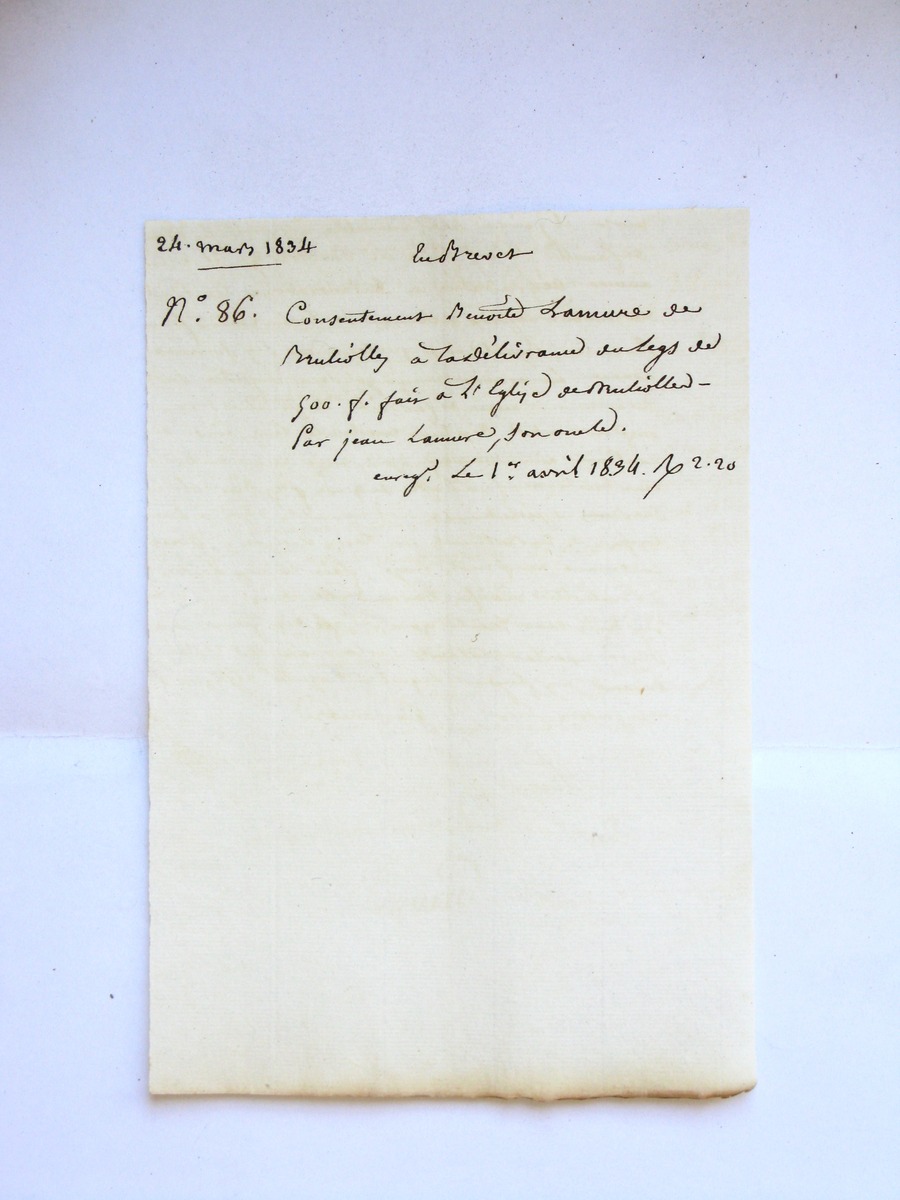 24. mars 1834
En Brevet
N.° 86. Consentement Benoîte Lamure de
Brulliolles à la délivrance du Legs de
500. f. fait à L'Eglise de Brulliolles -
Par jean Lamure, son oncle.
enreg.ᵗ Le 1.er avril 1834. R 2.20